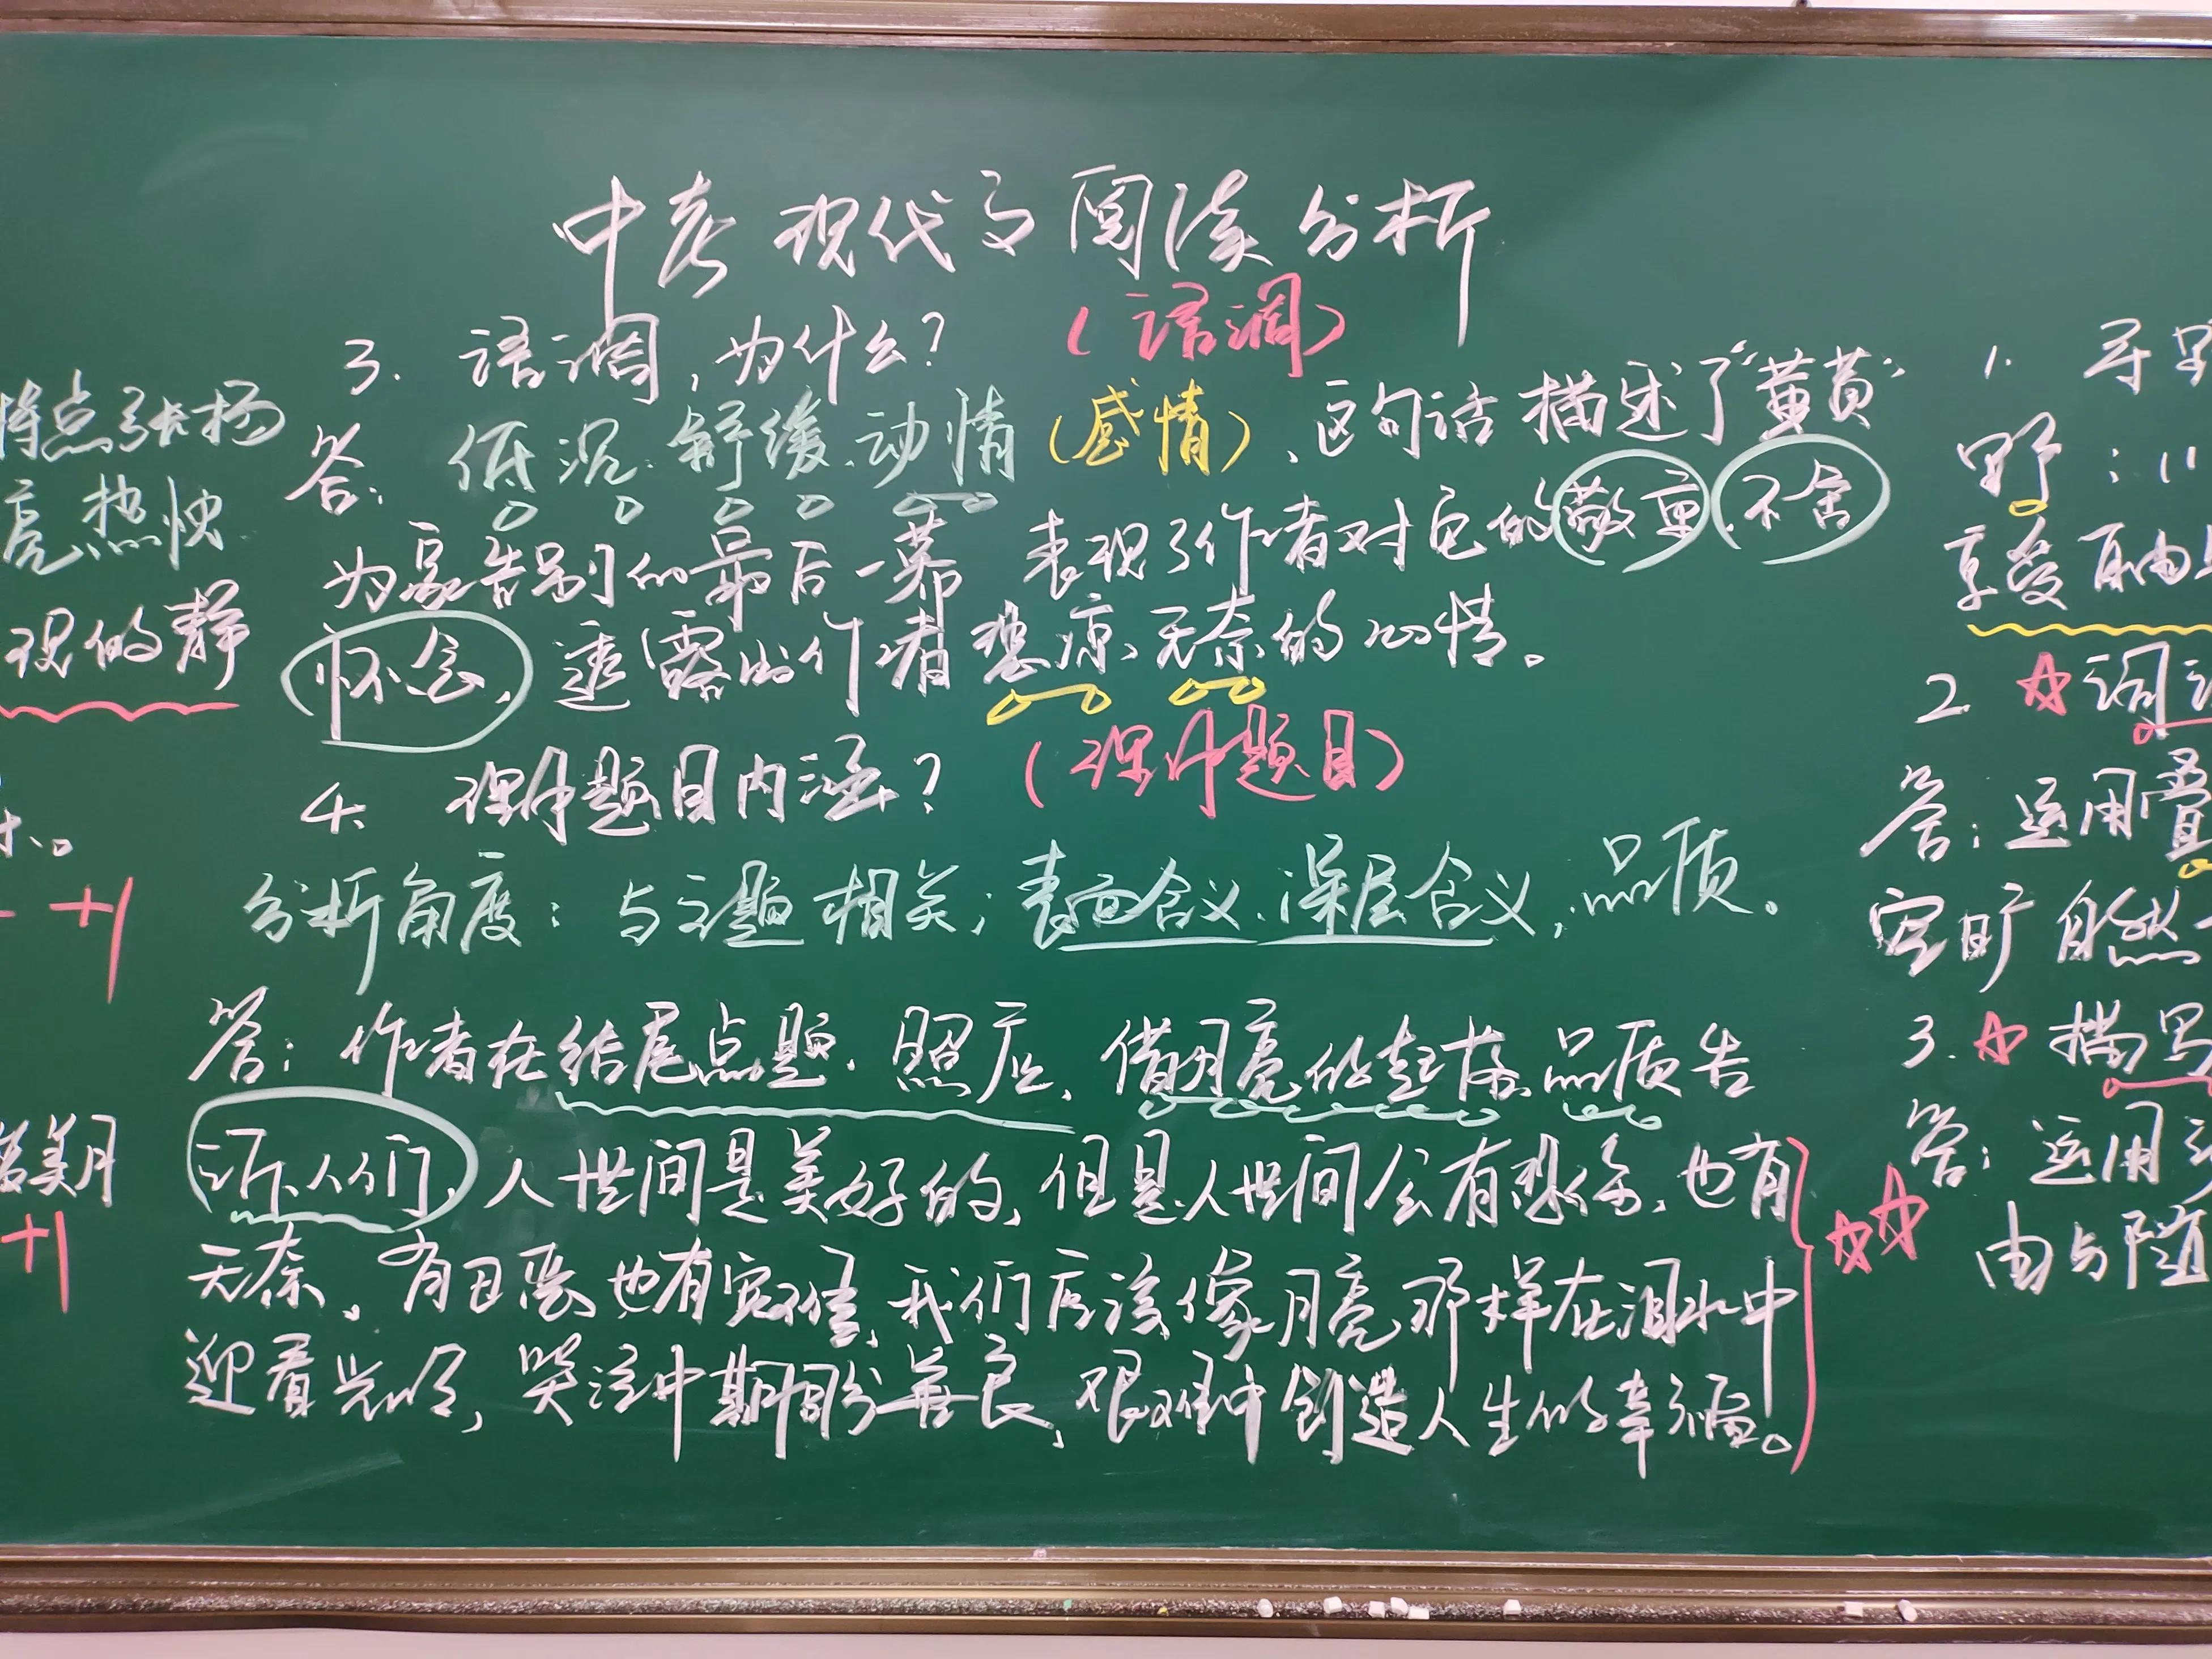 中考现代文阅读分析
3. 语调,为什么? (语调)
答: 低沉、舒缓、动情 (感情)、这句话描述了“黄黄”
为家告别的最后一幕 表现了作者对它的敬重、不舍
怀念, 透露出作者悲凉、无奈的心情。
4. 课外题目内涵? (课外题目)
分析角度: 与主题相关; 表面含义、深层含义; 品质。
答: 作者在结尾点题、照应, 借月亮的起落、品质告
诉人们, 人世间是美好的, 但是人世间会有悲伤, 也有
无奈, 有丑恶也有, 我们应该像月亮那样在泪水中
迎着光明, 哭泣中期盼善良, 艰难中创造人生的幸福。
特点张扬
亮、热
现的静
+1
美月
+1
1. 寻
野: "
享受
2. ☆ 词
答: 运用叠
空旷 自然
3. ☆ 描写
答: 运用
由与随